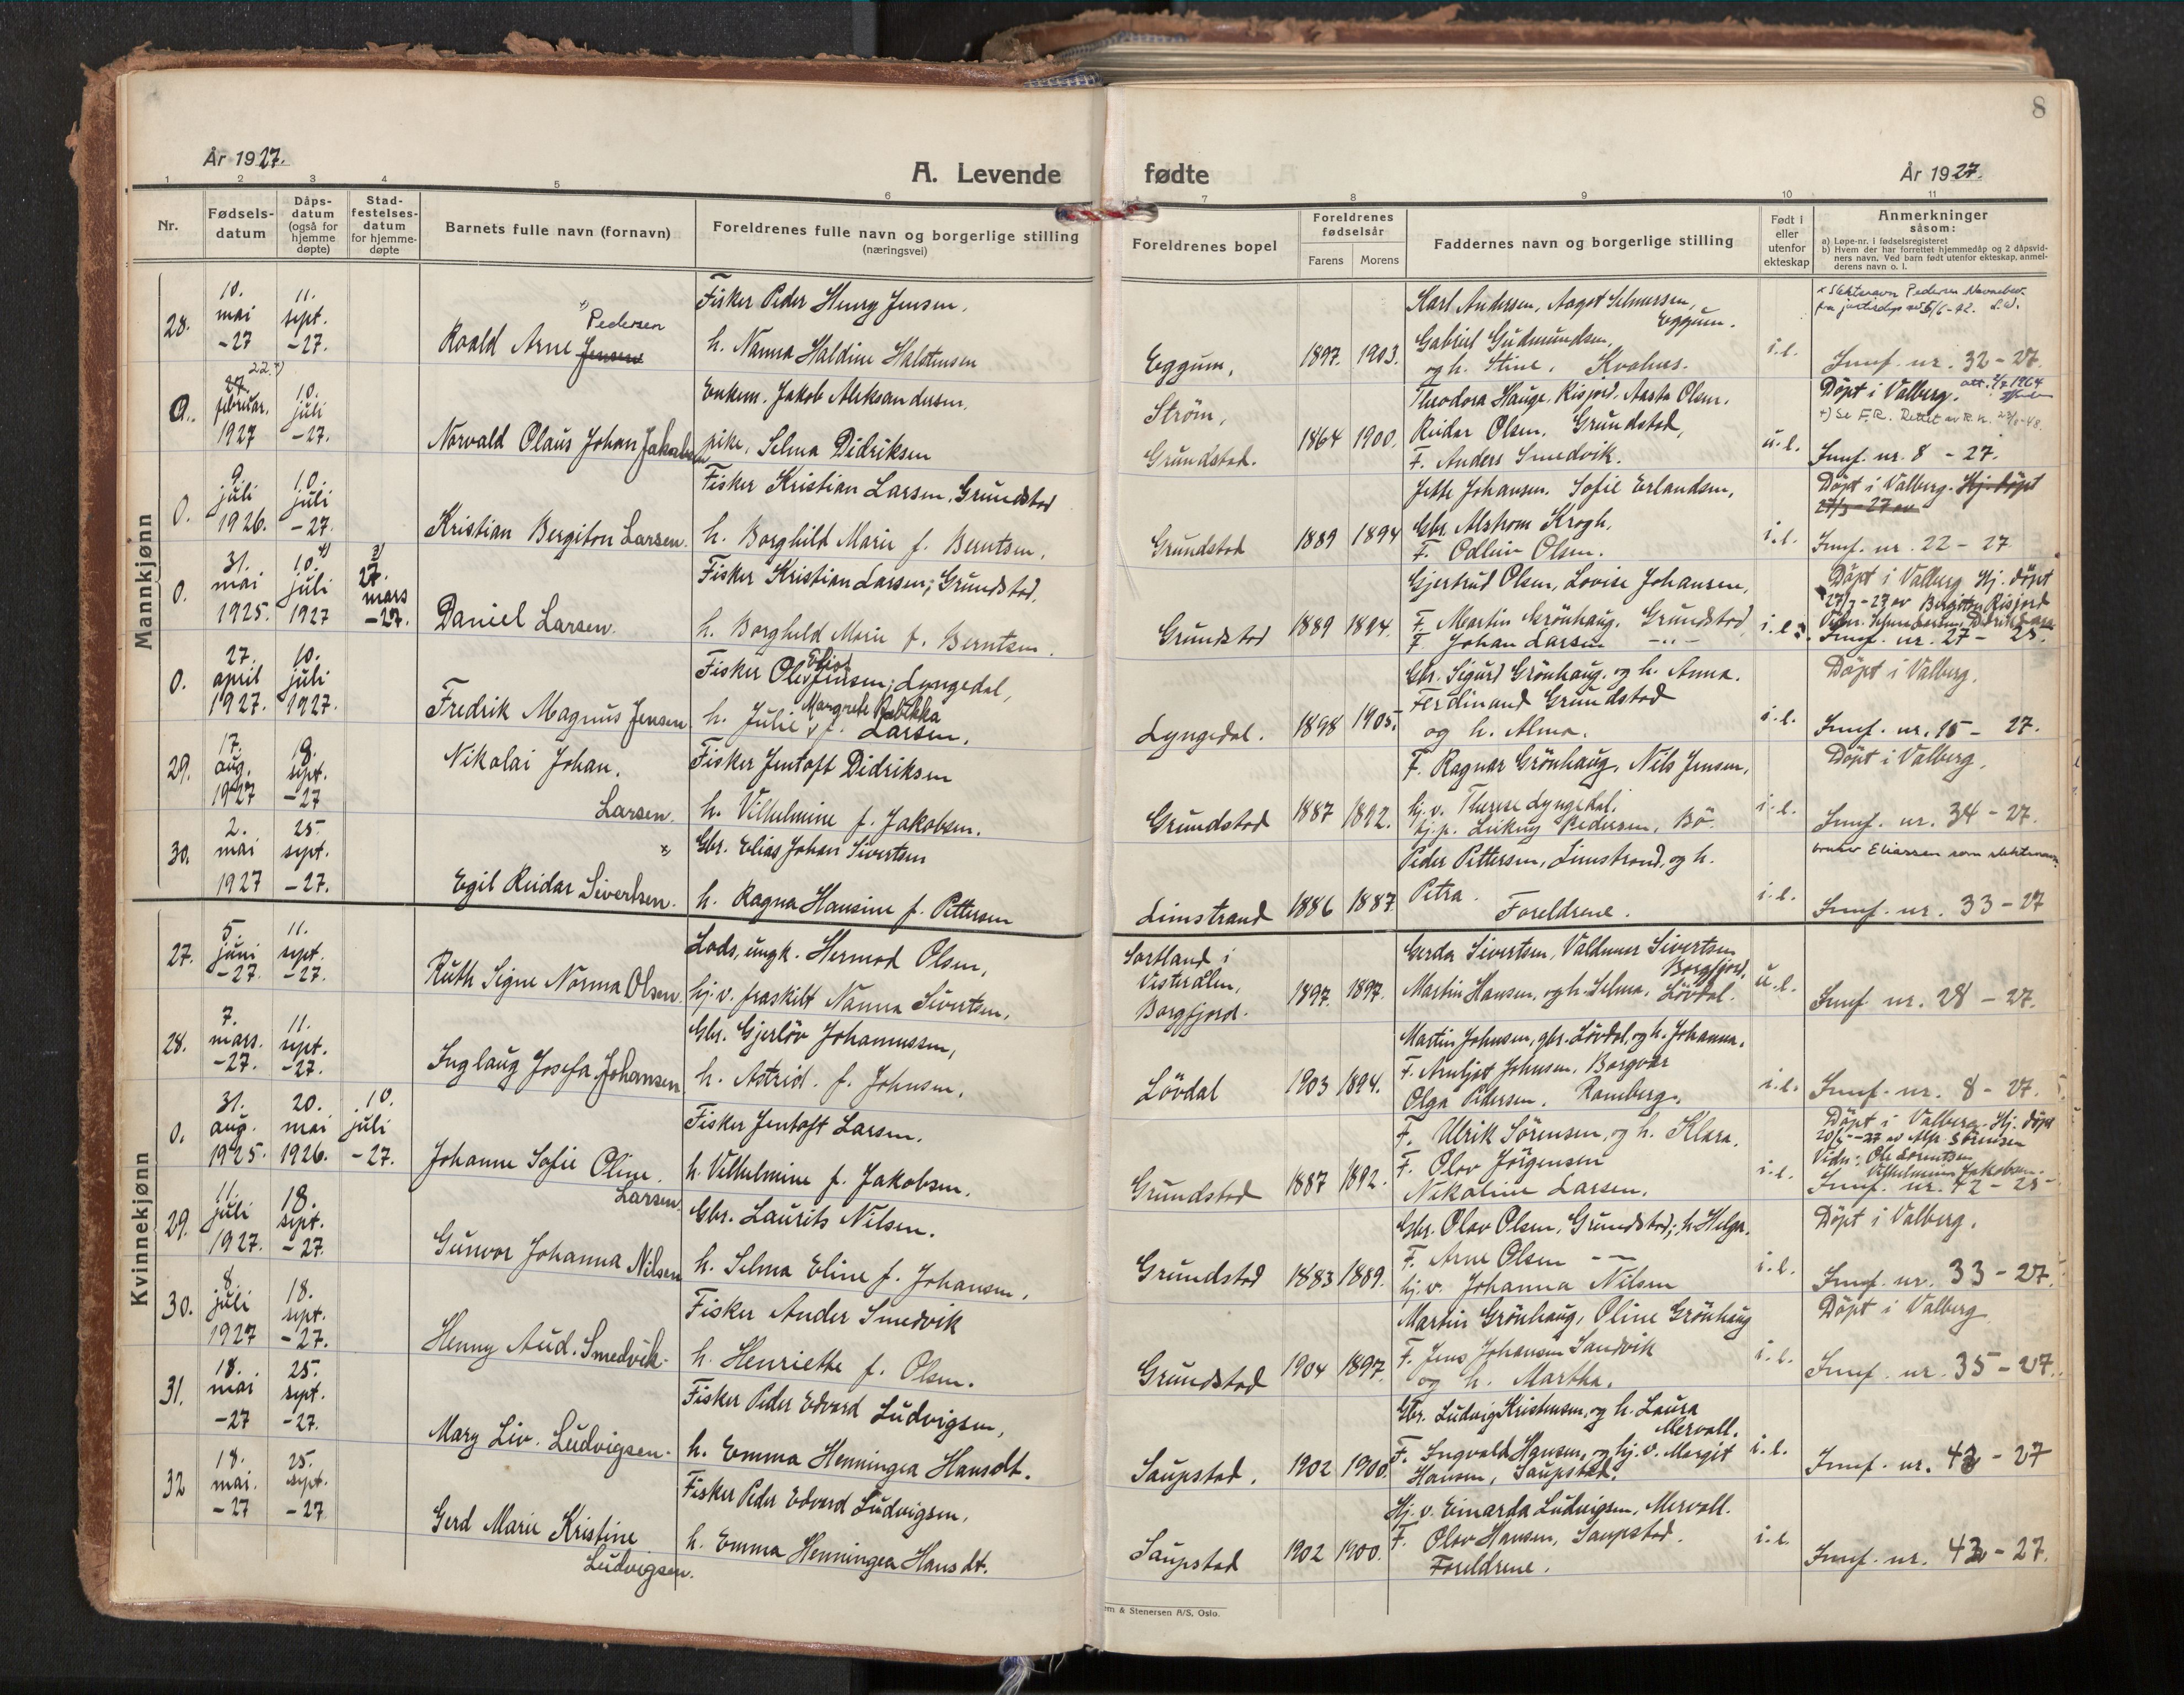 8
År 1927.
A. Levende
fødte
År 1927.
1 2 3 4 5 6 7 8 9 10 11
Nr.
Fødsels-
datum
Dåps-
datum
(også for
hjemme
døpte)
Stad-
festelses-
datum
for hjemme-
døpte
Barnets fulle navn (fornavn)
Foreldrenes fulle navn og borgerlige stilling
(næringsvei)
Foreldrenes bopel
Foreldrenes
fødselsår
Farens Morens
Faddernes navn og borgerlige stilling
Født i
eller
utenfor
ekteskap
Anmerkninger
såsom:
a) Løpe-nr. i fødselsregisteret
b) Hvem der har forrettet hjemmedåp og 2 dåpsvid-
ners navn. Ved barn født utenfor ekteskap, anmel-
derens navn o. l.
Mannkjønn
28.
10.
mai
-27
11.
sept.
-27.
Pedersen
Roald Arne Jensen
Fisker Peder Henry Jensen.
h. Nanna Haldine Halstensen
Eggum,
1897. 1903.
Karl Andersen, Aagot
Eggum.
Gabriel Gudmundsen,
og h. Stine, Kvahus.
i.l.
x Slektsnavn Pedersen
Innf. nr. 32-27.
0.
27. 22.
februar.
1927
10.
juli
-27.
Norvald Olaus Johan Jakobsen
Enkem. Jakob Aleksandersen.
pike, Selma Didriksen
Strøm,
Grundstad.
1864 1900.
Theodora Hauge, Risjord. Aasta Olsen.
Reidar Olsen. Grundstad,
F. Anders Smedvik.
u.l.
Døpt i Valberg. att. 2/7 1964
+) Se F.R. Rettet av
Innf. nr. 8 - 27.
0.
9.
juli
1926.
10.
juli
-27.
Kristian Bergiton Larsen.
Fisker Kristian Larsen, Grundstad
h. Borghild Marie f. Berntsen.
Grundstad
1889 1894
Jette Johansen. Sofie Erlandsen,
Gbr. Alstrom Krogh,
F. Odleiv Olsen.
i.l.
Døpt i Valberg. Hj. døpt
27/3-27 av
Innf. nr. 22 - 27
0.
31.
mai
1925.
10.
juli
1927
27.
mars
-27.
Daniel Larsen.
Fisker Kristian Larsen; Grundstad.
h. Borghild Marie f. Berntsen.
Grundstad
1889 1894.
Gjertrud Olsen, Lovise Johansen,
F. Martin Grønhaug. Grundstad
F. Johan Larsen -"-
i.l.
Døpt i Valberg Hj. døpt
27/3-27 av Bergitte Risjord
Innf. nr. 27 - 25.
0.
27.
april
1927.
10.
juli
1927.
Fredrik Magnus Jensen
Fisker Olav Jensen; Lyngedal,
Margrete Rebekka
h. Julie f. Larsen.
Lyngedal.
1898 1905.
Gbr. Sigurd Grønhaug. og h. Anna.
Ferdinand Grundstad
og h. Alma.
i.l.
Døpt i Valberg.
Innf. nr. 15 - 27.
29.
17.
aug.
1927
18.
sept.
-27
Nikolai Johan.
Larsen.
Fisker Jentoft Didriksen
h. Vilhelmine f. Jakobsen.
Grundstad
1887 1892.
F. Ragnar Grønhaug, Nils Jensen,
hj.v. Therese Lyngedal.
Pedersen, Bø.
i.l.
Døpt i Valberg.
Innf. nr. 34 - 27.
30.
2.
mai
1927
25.
sept.
-27.
Egil Reidar Sivertsen.
Gbr. Elias Johan Sivertsen
h. Ragna Hansine f. Pettersen
Limstrand
1886 1887.
Peder Pettersen, Limstrand, og h.
Petra.
Foreldrene.
i.l.
bruker Eliassen som slektsnavn
Innf. nr. 33-27
Kvinnekjønn
27.
5.
juni
-27.
11.
sept.
-27.
Ruth Signe Norma Olsen.
Lods, ungk. Hermod Olsen,
hj.v. fraskilt Nanna Sivertsen,
Sortland i
Vesterålen,
Borgfjord.
1897. 1897.
Gerda Sivertsen, Valdemar Sivertsen
Borgfjord.
Martin Hansen, og h. Selma, Løvdal.
u.l.
Innf. nr. 28 - 27.
28.
7.
mars.
-27.
11.
sept.
-27.
Inglaug Josefa Johansen
Gbr. Gjerløv Johannessen,
h. Astrid. f. Johnsen.
Løvdal
1903 1894.
Martin Johnsen, gbr. Løvdal, og h. Johanna.
F. Arnljot Johnsen, Borgvær
Olga Pedersen. Ramberg.
i.l.
Innf. nr. 8 - 27.
0.
31.
aug.
1925.
20.
mai
1926.
10.
juli
-27.
Johanne Sofie Oline.
Larsen.
Fisker Jentoft Larsen.
h. Vilhelmine f. Jakobsen.
Grundstad
1887 1892.
F. Ulrik Sørensen, og h. Klara.
F. Olav Jørgensen
Nikoline Larsen.
i.l.
Døpt i Valberg. Hj. døpt
20/5-27 av Alfr. Sørensen
Vidn: Ole Lorentsen
Vilhelmine Jakobsen.
Innf. nr. 42 - 25
29.
11.
juli
1927.
18.
sept.
-27.
Gunvor Johanna Nilsen
Gbr. Laurits Nilsen.
h. Selma Eline f. Johansen.
Grundstad
1883 1889.
Gbr. Olav Olsen, Grundstad; h. Helga.
F. Arne Olsen -"-
hj.v. Johanna Nilsen
i.l.
Døpt i Valberg.
Innf. nr. 33-27.
30.
8.
juli
1927
18.
sept.
-27.
Henny Aud. Smedvik.
Fisker Ander Smedvik
h. Henriette f. Olsen.
Grundstad
1904 1897.
Martin Grønhaug, Oline Grønhaug
F. Jens Johansen Sandvik
og h. Martha.
i.l.
Døpt i Valberg
Innf. nr. 35-27.
31.
18.
mai
-27
25.
sept.
-27.
Mary Liv. Ludvigsen.
Fisker Peder Edvard Ludvigsen,
h. Emma Henningea Hansdt.
Saupstad.
1902 1900.
Gbr. Ludvig Kristensen, og h. Laura
Mervoll.
F. Ingvald Hansen, og hj.v. Margit
Hansen, Saupstad.
i.l.
Innf. nr. 42-27
32
18.
mai.
-27
25.
sept.
-27
Gerd Marie Kristine
Ludvigsen.
Fisker Peder Edvard Ludvigsen,
h. Emma Henningea Hansdt.
Saupstad
1902 1900.
Hj.v. Einarda Ludvigsen, Mervoll.
F. Olav Hansen, Saupstad.
Foreldrene.
i.l.
Innf. nr. 43-27.
& Stenersen A/S, Oslo.